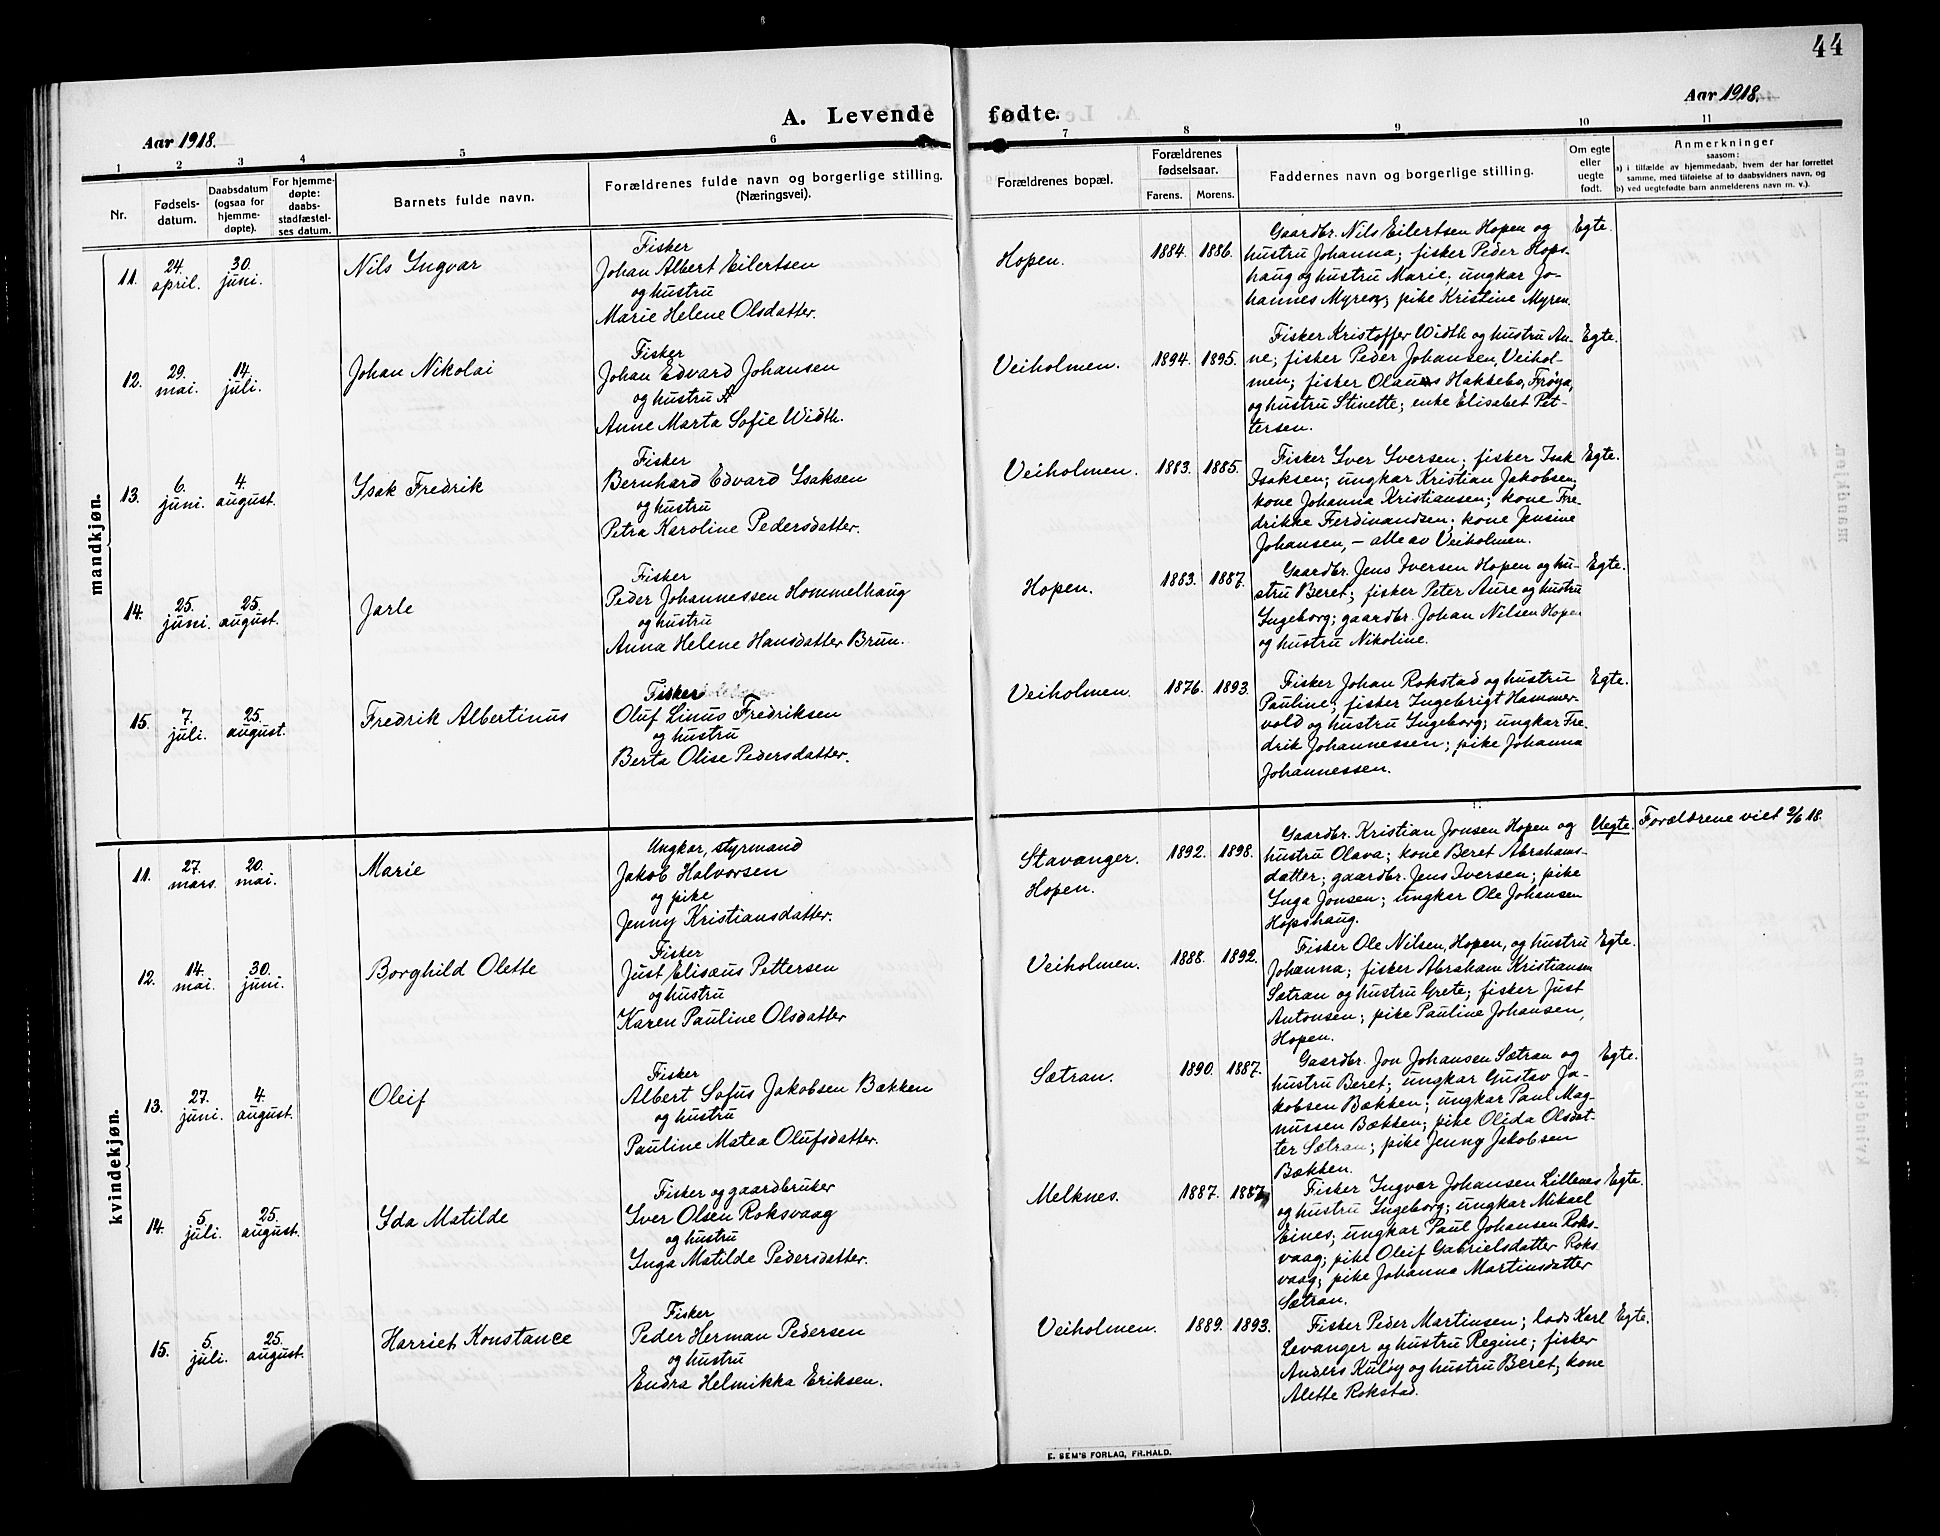 44
A. Levende fødte.
Aar 1918.
Aar 1918.
1 2 3 4 5 6 7 8 9 10 11
Nr.
Fødsels-
datum.
Daabsdatum
(ogsaa for
hjemme-
døpte).
For hjemme-
døpte:
daabs-
stadfæstel-
ses datum.
Barnets fulde navn.
Forældrenes fulde navn og borgerlige stilling.
(Næringsvei).
Forældrenes bopæl.
Forældrenes
fødselsaar.
Farens. Morens.
Faddernes navn og borgerlige stilling.
Om egte
eller
uegte
født.
Anmerkninger
saasom:
a) i tilfælde av hjemmedaab, hvem der har forrettet
samme, med tilføielse af to daabsvidners navn, og
b) ved uegtefødte barn anmelderens navn m. v.).
mandkjøn.
11.
24.
april.
30.
juni.
Nils Ingvar
Fisker
Johan Albert Eilertsen
og hustru
Marie Helene Olsdatter.
Hopen.
1884. 1886.
Gaardbr. Nils Eilertsen Hopen og
hustru Johanna; fisker Peder Hops-
haug og hustru Marie; ungkar Jo-
hannes Myren; pike Kristine Myren.
Egte.
12.
29.
mai.
14.
juli.
Johan Nikolai
Fisker
Johan Edvard Johansen
og hustru
Anne Marta Sofie Width.
Veiholmen.
1894. 1895.
Fisker Kristoffer Width og hustru An-
ne; fisker Peder Johansen, Veihol-
men; fisker Olaus Hakkebo, Frøya,
og hustru Stinette; enke Elisabet Pet-
tersen.
Egte.
13.
6.
juni.
4.
august.
Isak Fredrik
Fisker
Bernhard Edvard Isaksen
og hustru
Petra Karoline Pedersdatter.
Veiholmen.
1883. 1885.
Fisker Iver Iversen; fisker Isak
Isaksen; ungkar Kristian Jakobsen;
kone Johanna Kristiansen; kone Fre-
drikke Ferdinandsen; kone Jensine
Johansen, – alle av Veiholmen.
Egte.
14.
25.
juni.
25.
august.
Jarle
Fisker
Peder Johannessen Hommelhaug
og hustru
Anna Helene Hansdatter Brun.
Hopen.
1883. 1887.
Gaardbr. Jens Iversen Hopen og hu-
stru Beret; fisker Peter Aure og hustru
Ingeborg; gaardbr. Johan Nilsen Hopen
og hustru Nikoline.
Egte.
15.
7.
juli.
25.
august.
Fredrik Albertinus
Fisker
Oluf Linus Fredriksen
og hustru
Berta Olise Pedersdatter.
Veiholmen.
1876. 1893.
Fisker Johan Rokstad og hustru
Pauline; fisker Ingebrigt Hammer-
vold og hustru Ingeborg; ungkar Fre-
drik Johannessen; pike Johanna
Johannessen.
Egte.
kvindekjøn.
11.
27.
mars.
20.
mai.
Marie
Ungkar, styrmand
Jakob Halvorsen
og pike
Jenny Kristiansdatter.
Stavanger.
Hopen.
1892. 1898.
Gaardbr. Kristian Jonsen Hopen og
hustru Olava; kone Beret Abrahams-
datter; gaardbr. Jens Iversen; pike
Inga Jonsen; ungkar Ole Johansen
Hopshaug.
Uegte.
Forældrene viet 2/6 18.
12.
14.
mai.
30.
juni.
Borghild Olette
Fisker
Just Elisæus Pettersen
og hustru
Karen Pauline Olsdatter
Veiholmen.
1888. 1892.
Fisker Ole Nilsen, Hopen, og hustru
Johanna; fisker Abraham Kristiansen
Sætran og hustru Grete; fisker Just
Antonsen; pike Pauline Johansen,
Hopen.
Egte.
13.
27.
juni.
4.
august.
Oleif
Fisker
Albert Sofus Jakobsen Bækken
og hustru
Pauline Matea Olufsdatter.
Sætran.
1890. 1887.
Gaardbr. Jon Johansen Sætran og
hustru Beret; ungkar Gustav Ja-
kobsen Bækken; ungkar Paul Mag-
nussen Bækken; pike Olida Olsdat-
ter Sætran; pike Jenny Jakobsen
Bækken.
Egte.
14.
5.
juli.
25.
august.
Ida Matilde
Fisker og gaardbruker
Iver Olsen Roksvaag
og hustru
Inga Matilde Pedersdatter.
Melknes.
1887. 1887.
Fisker Ingvar Johansen Lillenes
og hustru Ingeborg; ungkar Mikael
Eines; ungkar Paul Johansen Roks-
vaag; pike Oleif Gabrielsdatter Roks-
vaag; pike Johanna Martinsdatter
Sætran.
Egte.
15.
5.
juli.
25.
august.
Harriet Konstance
Fisker
Peder Herman Pedersen
og hustru
Endra Helmikka Eriksen.
Veiholmen.
1889. 1893.
Fisker Peder Martinsen; lods Karl
Levanger og hustru Regine; fisker
Anders Kuløy og hustru Beret; kone
Alette Rokstad.
Egte.
E. SEM'S FORLAG, FR.HALD.